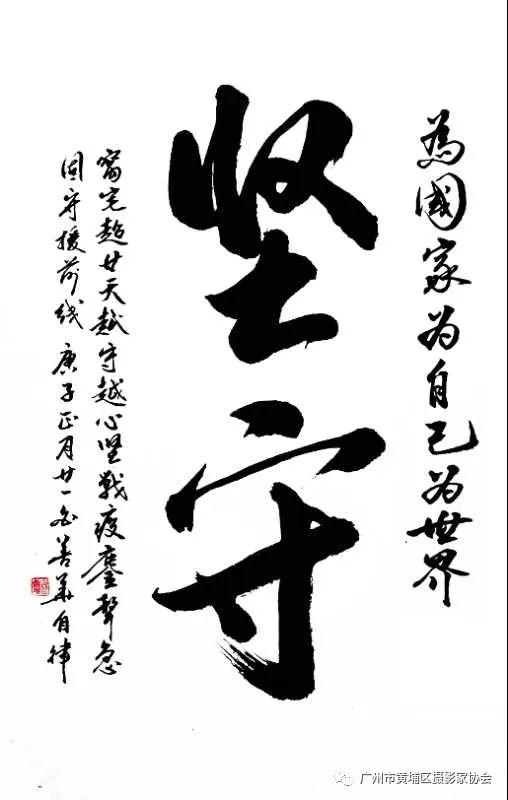 為國家为自己为世界
坚守
窩宅超廿天越守越心坚戰疫鏖聲急
固守援前线 庚子正月廿一 善華自律
广州市黄埔区摄影家协会